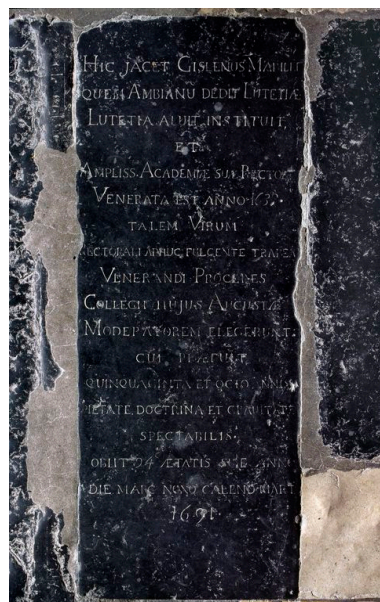 HIC JACET GISLENUS
QUEM AMBIANU DEDIT LUTETIÆ
LUTETIA ALUIT INSTITUIT
ET
AMPLISS. ACADEMIÆ SUÆ RECTOR
VENERATA EST ANNO
TALEM VIRUM
FULGENTE
VENERANDI PROCERES
COLLEGII HUJUS AUGUSTÆ
MODERATOREM ELEGERUNT.
CUI PRÆFUIT
QUINQUAGINTA ET OCTO ANNIS
PIETATE, DOCTRINA ET
SPECTABILIS.
OBIIT 94 ÆTATIS SUÆ ANNO
DIE NONO CALEND MART
1691